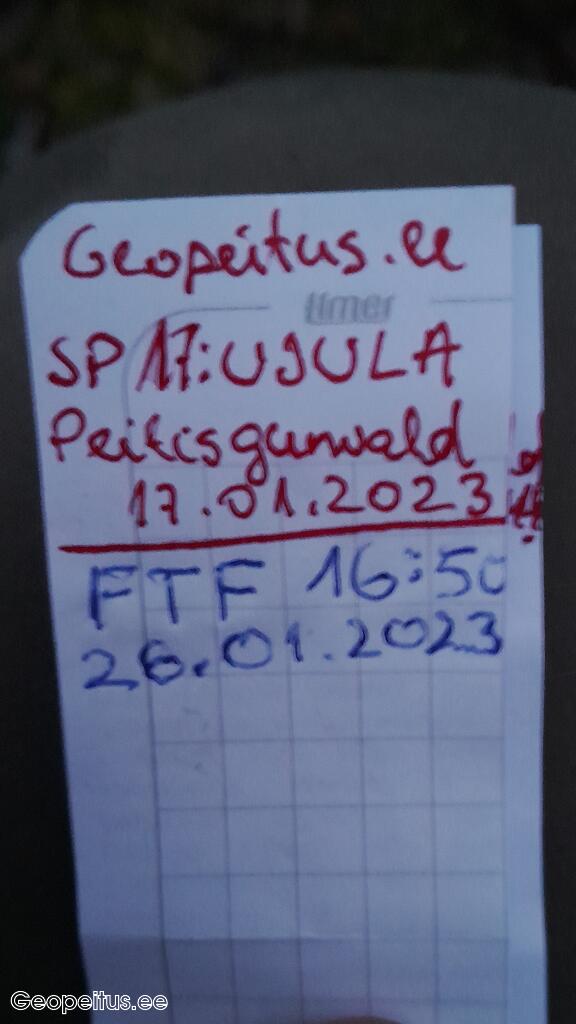 Geopeitus.ee
timer
SP 17: USULA
17.01.2023
FTF 16:50
26.01.2023
Geopeitus.ee